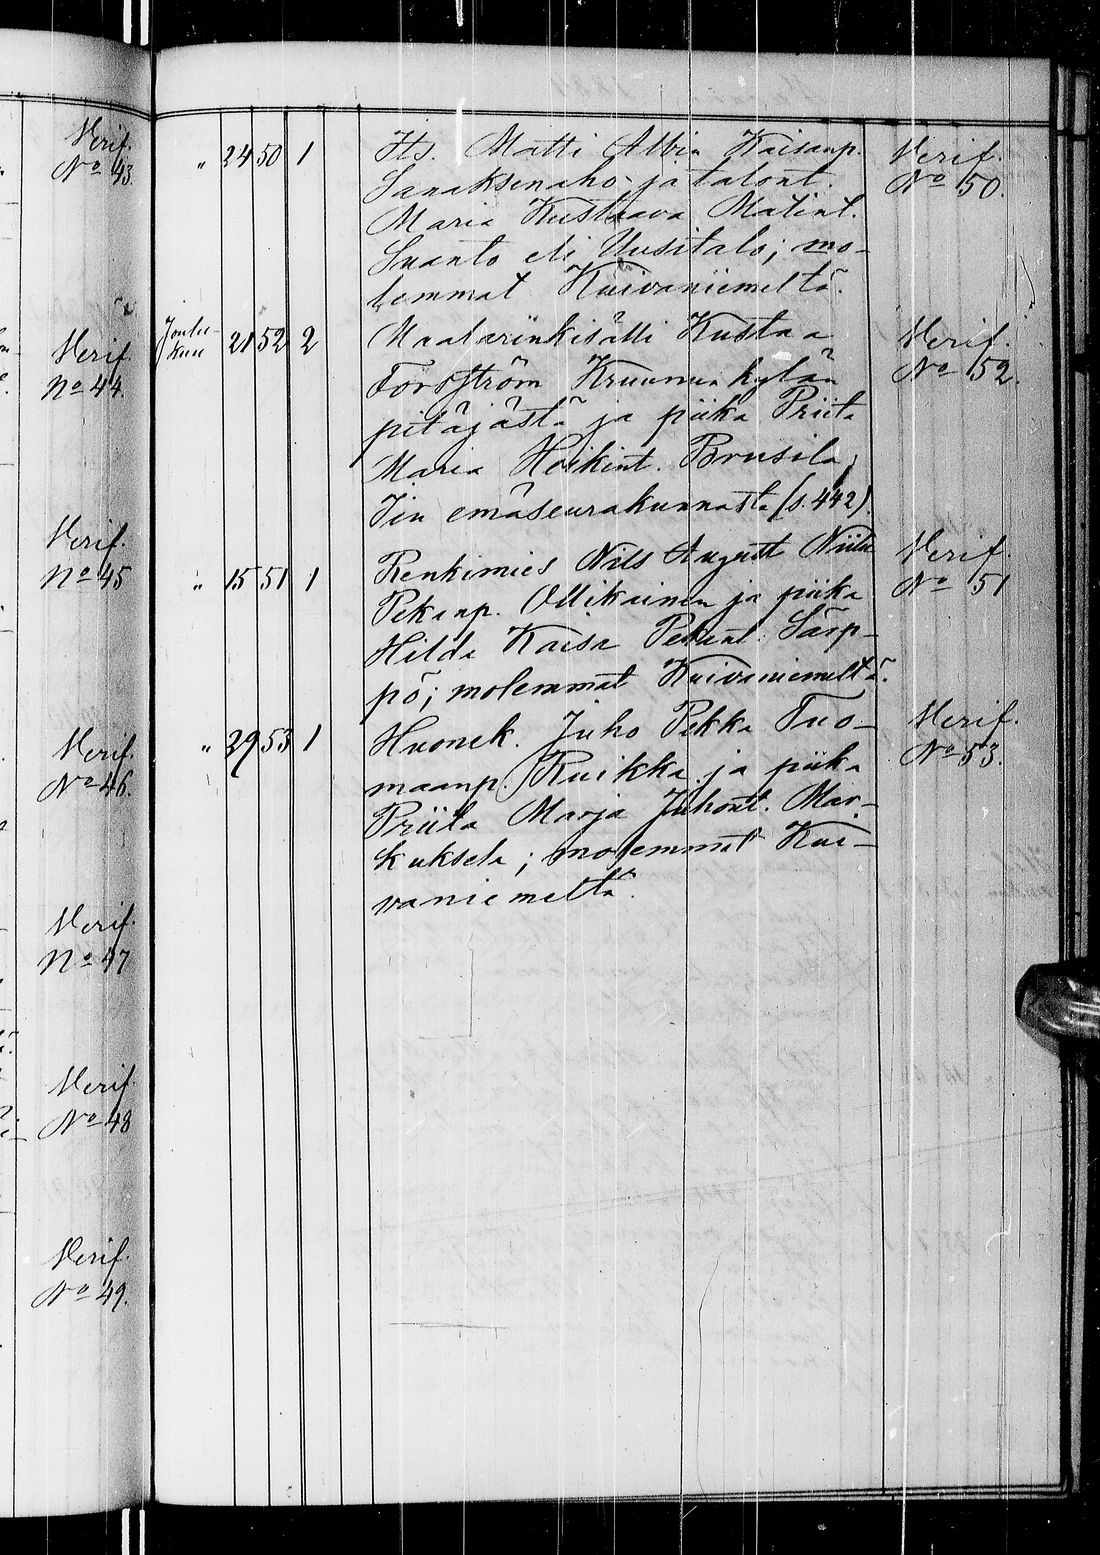 Verif.
No 43.
Verif.
No 44.
Verif.
No 45
Verif.
No 46.
Verif.
No 47
Verif.
No 48
Verif.
No 49.
" 24 50 1 Its. Matti Albin Kaisanp. Verif.
Sanaksenaho ja talont. No 50.
Maria Kustaava Matint.
Suanto eli Uusitalo; mo-
lemmat Kuivaniemeltä.
Joulu-
kuu 21 52 2 Maalarinkisälli Kustaa Verif.
Forsström Kruunun kylän No 52.
pitäjästä ja piika Priita
Maria Heikint. Brusila,
Iin emäseurakunnasta (s. 442).
" 15 51 1 Renkimies Nils August Niila Verif.
Pekanp. Ollikainen ja piika No 51
Hilda Kaisa Pekant. Särp-
pö; molemmat Kuivaniemeltä.
" 29 53 1 Huonek. Juho Pekka Tuo- Verif.
maanp. Kuikka ja piika No 53.
Priita Marja Juhont. Mar-
kuksela; molemmat Kui-
vaniemeltä.